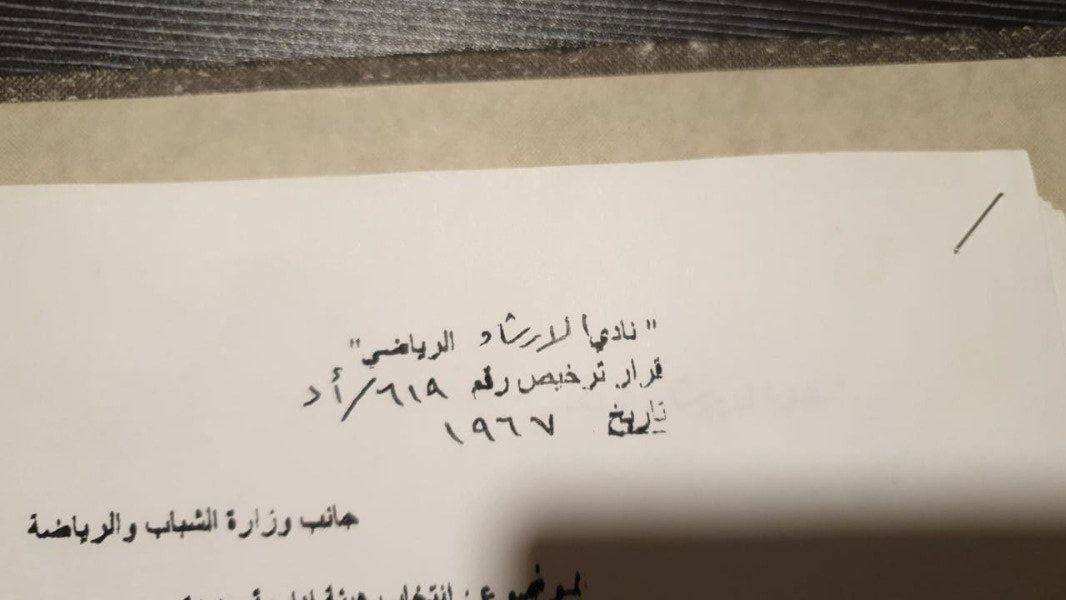 "نادي الارشاد الرياضي"
قرار ترخيص رقم ٦١٩/أد
تاريخ ١٩٦٧
جانب وزارة الشباب والرياضة
الموضوع عن انتخاب هيئة ادارية